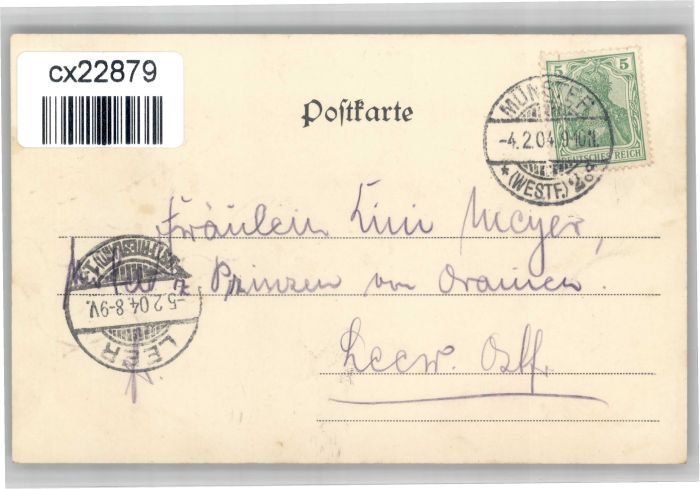 cx22879
Postkarte
5 5
DEUTSCHES REICH
MÜNSTER
-4.2.04.9-10N.
* (WESTF.) *
Fräulein Lini Meyer,
Prinzen von Oranien.
Leer. Ostf.
LEER
-5.2.04.8-9V.